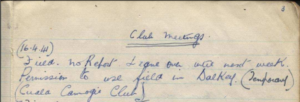 Club Meetings.
(16.4.41)
Field. no Refert Legue over until next week.
Permission to use field in Dalkey. (Temporary)
Cuala Camogie Club